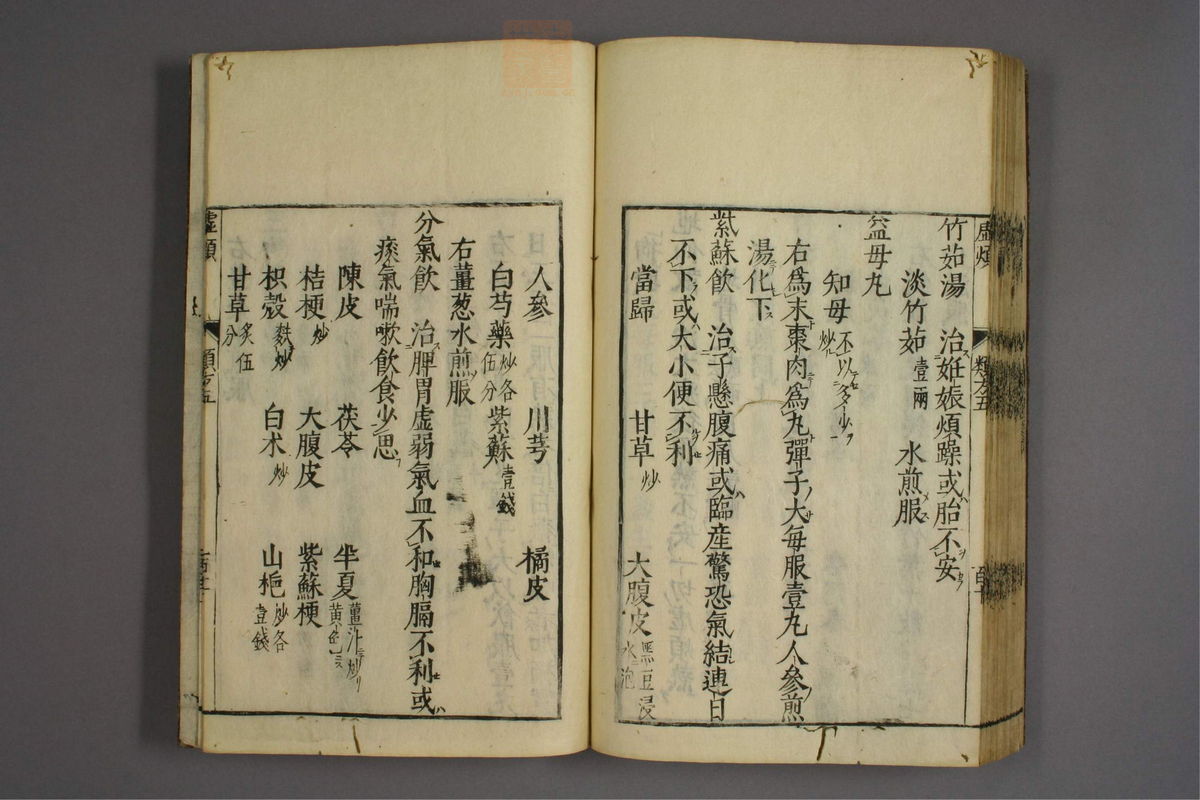 虛煩
類方五
竹茹湯　治妊娠煩躁或胎不安
淡竹茹壹兩　水煎服
益母丸
知母不以多少炒
右爲末棗肉爲丸彈子大每服壹丸人參煎
湯化下
紫蘇飲　治子懸腹痛或臨産驚恐氣結連日
不下或大小便不利
當歸　甘草炒　大腹皮黑豆浸水泡
人參　川芎　橘皮
白芍藥炒各伍分　紫蘇壹錢
右薑葱水煎服
分氣飲　治脾胃虛弱氣血不和胸膈不利或
痰氣喘嗽飲食少思
陳皮　茯苓　半夏薑汁炒黃色
桔梗炒　大腹皮　紫蘇梗
枳殼麩炒　白朮炒　山梔炒各壹錢
甘草炙伍分
虛煩
類方五